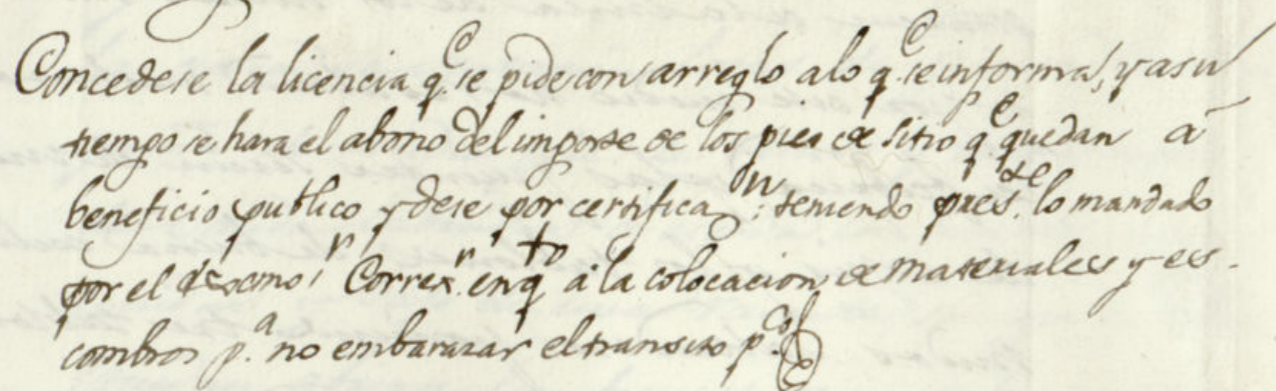 Concedese la licencia q.e se pide con arreglo a lo q.e se informa, y a su
tiempo se hara el abono del importe de los pies de sitio q.e quedan à
beneficio publico y dese por certificaz.n: teniendo pres.te lo mandado
por el S.r Correx.r en q.to à la colocacion de materiales y es-
combros p.a no embarazar el transito p.co